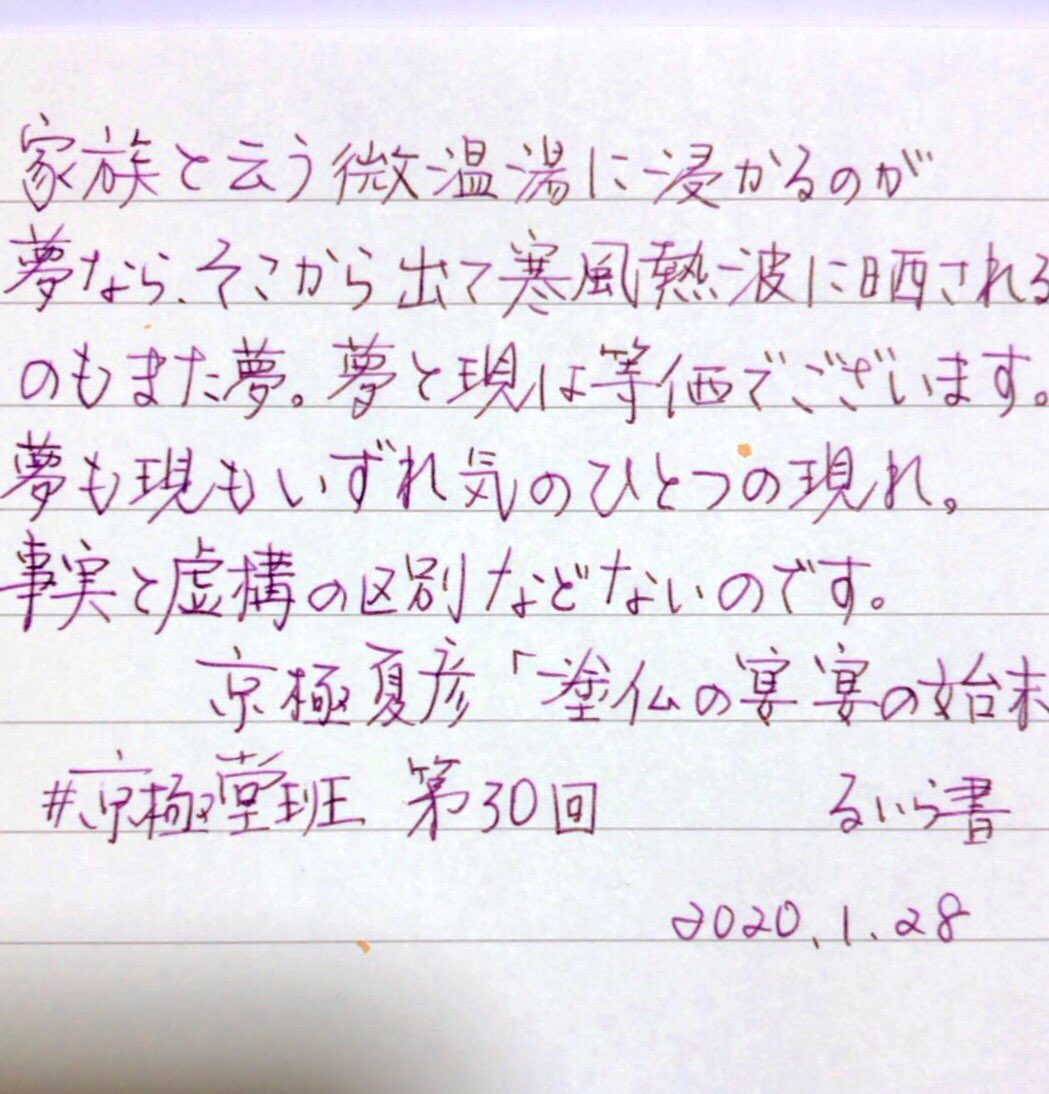 家族と云う微温湯に浸かるのが
夢なら、そこから出て寒風熱波に晒される
のもまた夢。夢と現は等価でございます。
夢も現もいずれ気のひとつの現れ。
事実と虚構の区別などないのです。
京極夏彦「塗仏の宴宴の始末
#京極堂班 第30回 るいら書
2020.1.28